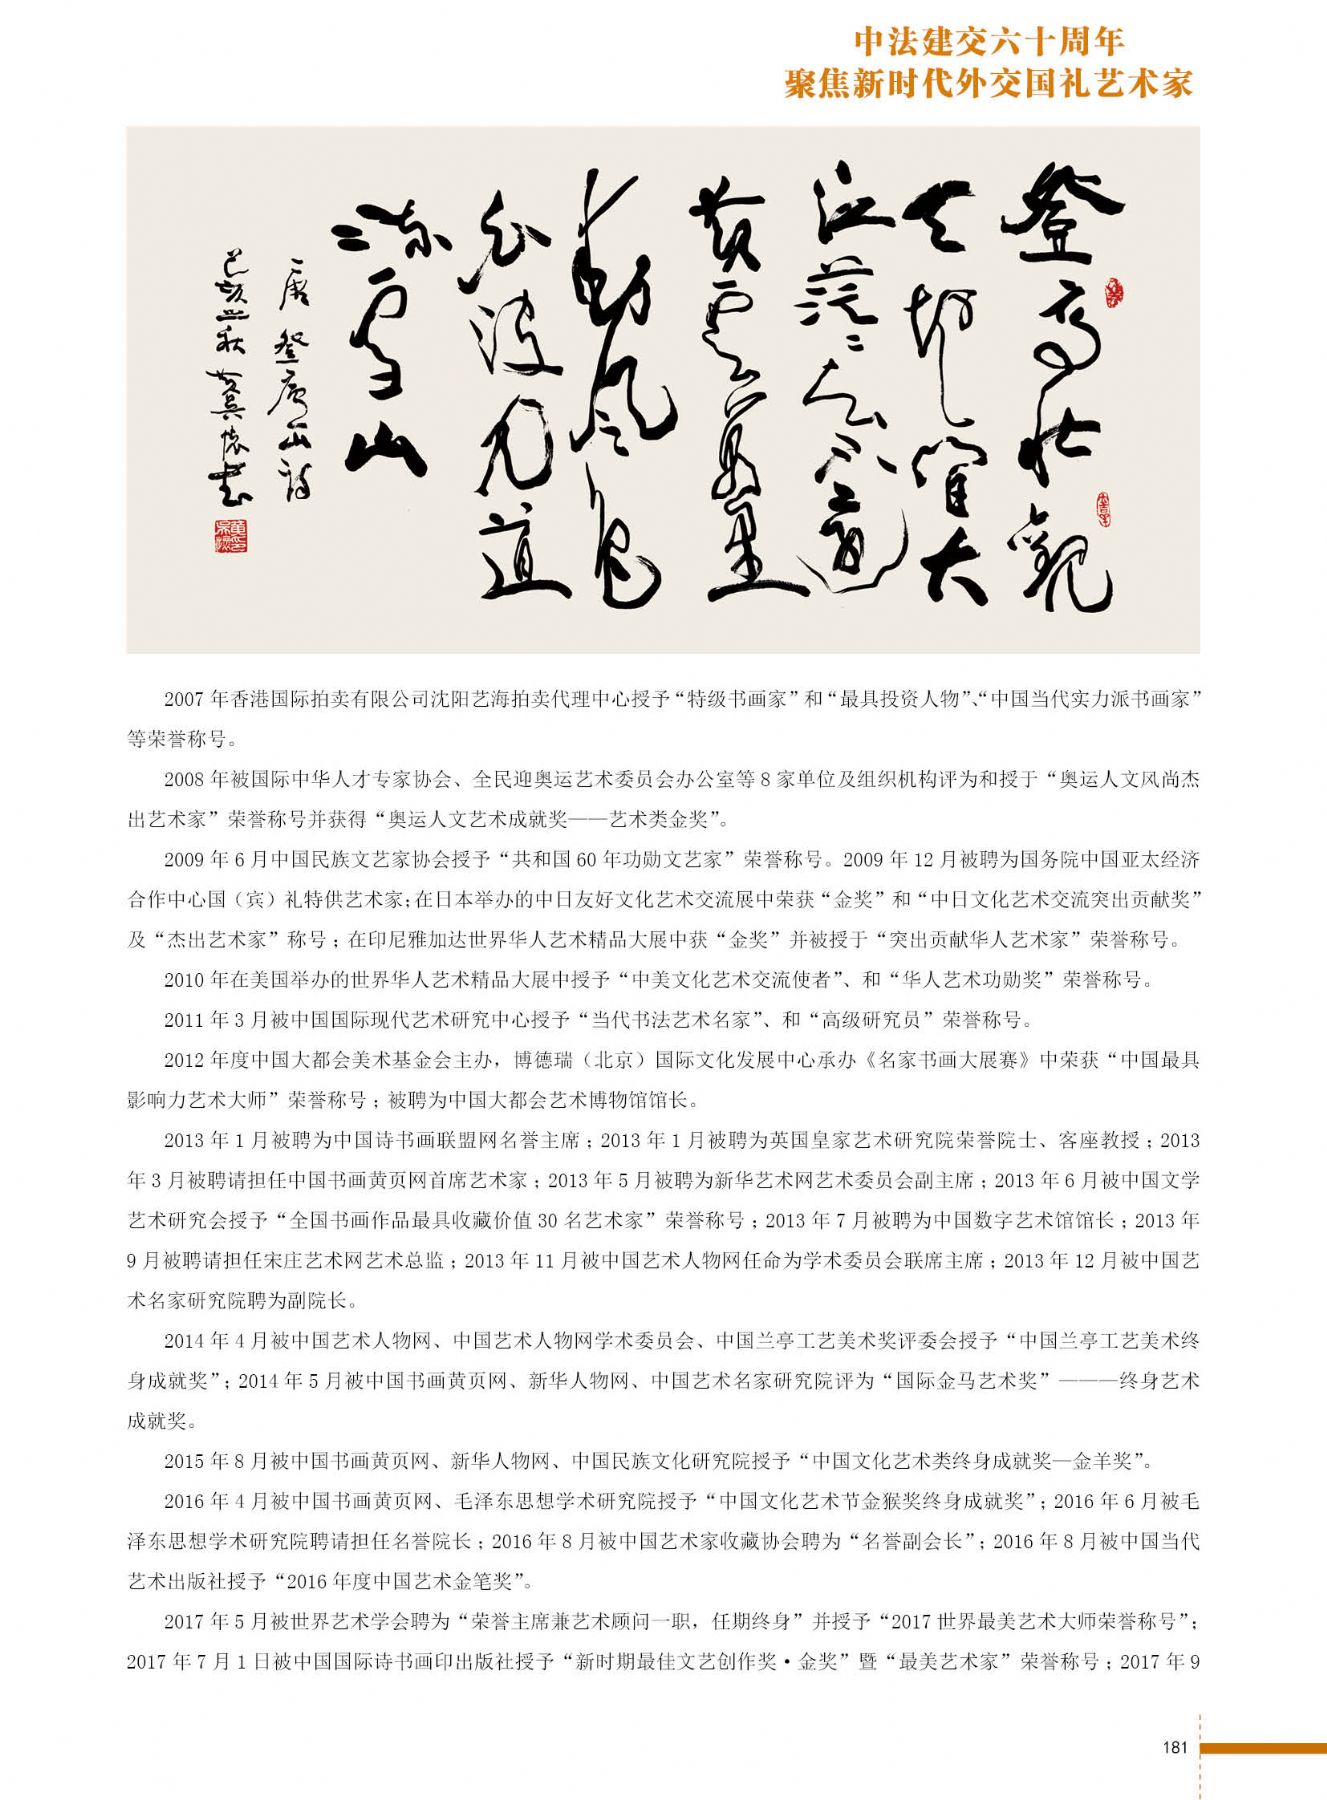 中法建交六十周年
聚焦新时代外交国礼艺术家
登高壮观
天地间大
江茫茫去不还
黄云万里
动风色
白波九道
流雪山
唐 登庐山诗
己亥之秋 黄吴怀书
2007 年香港国际拍卖有限公司沈阳艺海拍卖代理中心授予“特级书画家”和“最具投资人物”、“中国当代实力派书画家”
等荣誉称号。
2008 年被国际中华人才专家协会、全民迎奥运艺术委员会办公室等 8 家单位及组织机构评为和授于“奥运人文风尚杰
出艺术家”荣誉称号并获得“奥运人文艺术成就奖——艺术类金奖”。
2009 年 6 月中国民族文艺家协会授予“共和国 60 年功勋文艺家”荣誉称号。2009 年 12 月被聘为国务院中国亚太经济
合作中心国（宾）礼特供艺术家；在日本举办的中日友好文化艺术交流展中荣获“金奖”和“中日文化艺术交流突出贡献奖”
及“杰出艺术家”称号；在印尼雅加达世界华人艺术精品大展中获“金奖”并被授于“突出贡献华人艺术家”荣誉称号。
2010 年在美国举办的世界华人艺术精品大展中授予“中美文化艺术交流使者”、和“华人艺术功勋奖”荣誉称号。
2011 年 3 月被中国国际现代艺术研究中心授予“当代书法艺术名家”、和“高级研究员”荣誉称号。
2012 年度中国大都会美术基金会主办，博德瑞（北京）国际文化发展中心承办《名家书画大展赛》中荣获“中国最具
影响力艺术大师”荣誉称号；被聘为中国大都会艺术博物馆馆长。
2013 年 1 月被聘为中国诗书画联盟网名誉主席；2013 年 1 月被聘为英国皇家艺术研究院荣誉院士、客座教授；2013
年 3 月被聘请担任中国书画黄页网首席艺术家；2013 年 5 月被聘为新华艺术网艺术委员会副主席；2013 年 6 月被中国文学
艺术研究会授予“全国书画作品最具收藏价值 30 名艺术家”荣誉称号；2013 年 7 月被聘为中国数字艺术馆馆长；2013 年
9 月被聘请担任宋庄艺术网艺术总监；2013 年 11 月被中国艺术人物网任命为学术委员会联席主席；2013 年 12 月被中国艺
术名家研究院聘为副院长。
2014 年 4 月被中国艺术人物网、中国艺术人物网学术委员会、中国兰亭工艺美术奖评委会授予“中国兰亭工艺美术终
身成就奖”；2014 年 5 月被中国书画黄页网、新华人物网、中国艺术名家研究院评为“国际金马艺术奖”———终身艺术
成就奖。
2015 年 8 月被中国书画黄页网、新华人物网、中国民族文化研究院授予“中国文化艺术类终身成就奖—金羊奖”。
2016 年 4 月被中国书画黄页网、毛泽东思想学术研究院授予“中国文化艺术节金猴奖终身成就奖”；2016 年 6 月被毛
泽东思想学术研究院聘请担任名誉院长；2016 年 8 月被中国艺术家收藏协会聘为“名誉副会长”；2016 年 8 月被中国当代
艺术出版社授予“2016 年度中国艺术金笔奖”。
2017 年 5 月被世界艺术学会聘为“荣誉主席兼艺术顾问一职，任期终身”并授予“2017 世界最美艺术大师荣誉称号”；
2017 年 7 月 1 日被中国国际诗书画印出版社授予“新时期最佳文艺创作奖·金奖”暨“最美艺术家”荣誉称号；2017 年 9
181